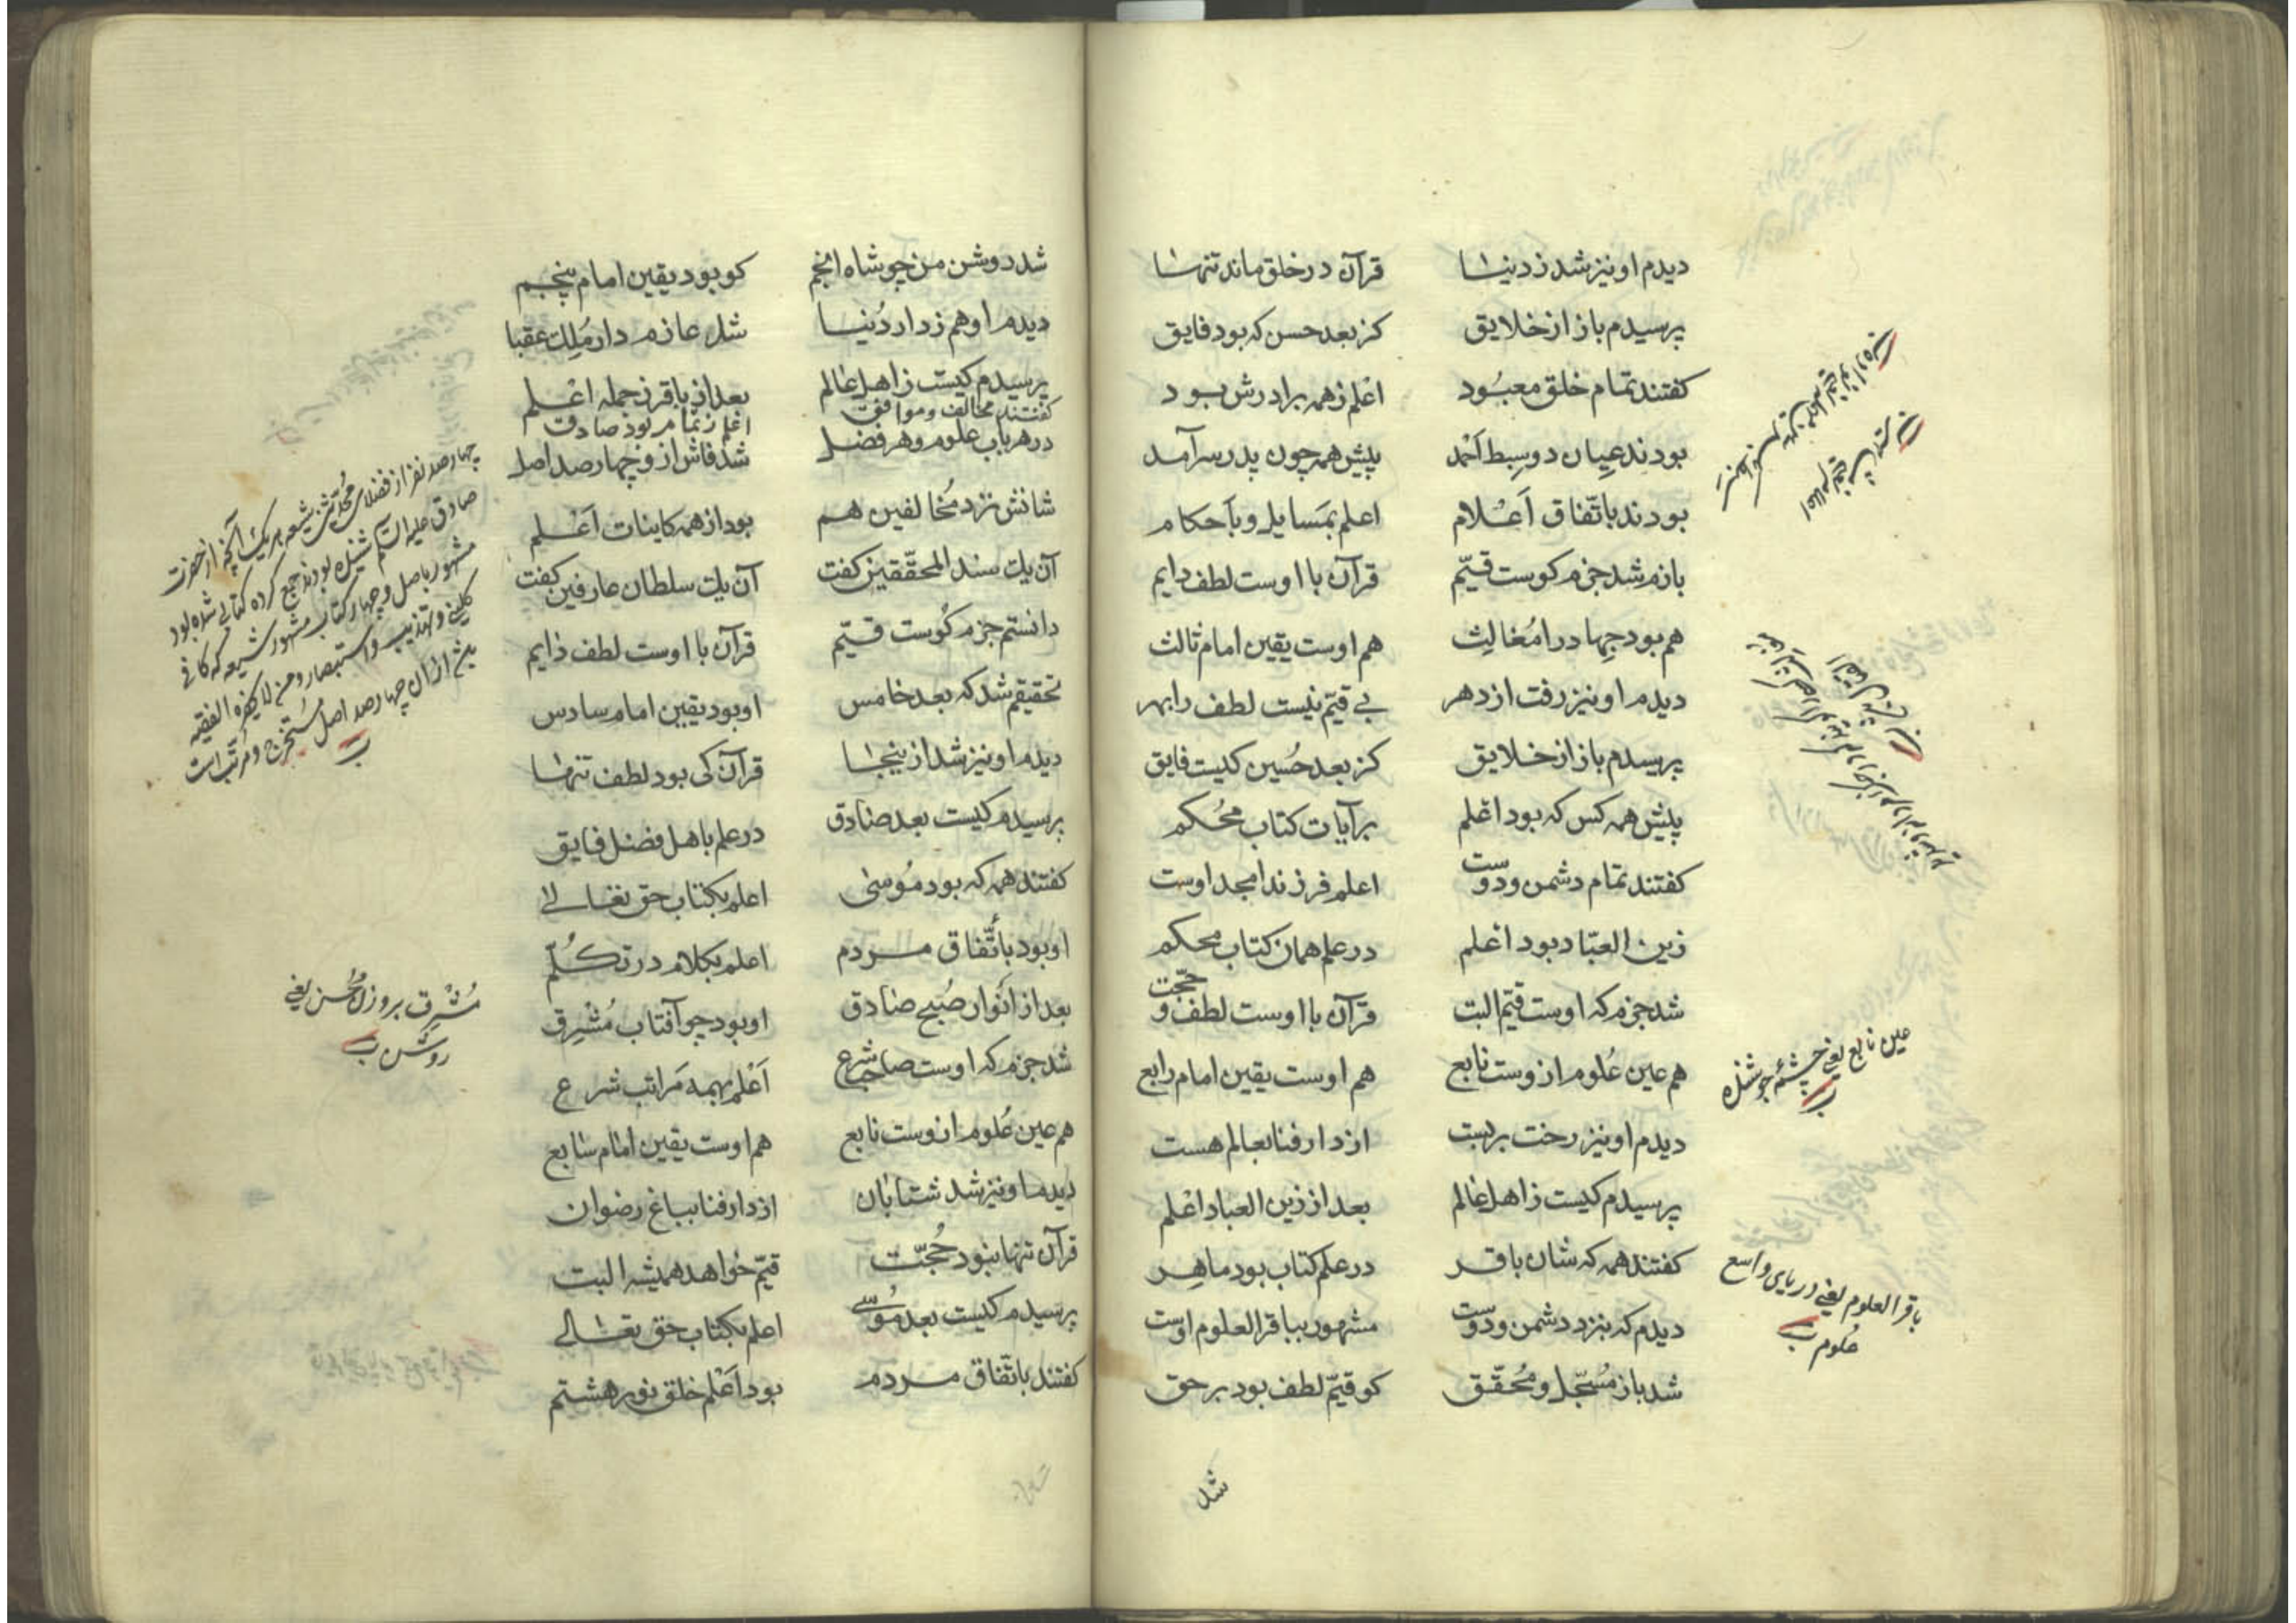 دیدم او نیز شد ز دنیا قرآن در خلق ماند تنها
پرسیدم باز از خلایق کز بعد حسن که بود فایق
کفتند تمام خلق معبُود اعْلم ز همه برادرش بود
بودند عیان دو سِبط احمد پیش همه چون پدر سرآمد
بودند باتّفاق اَعْلام اعلم بمسایل و باَحکام
بازم شد جزم کوست قیّم قرآن با اوست لطف دایم
هم بود جِهاد را مُغالِث هم اوست یقین امام ثالث
دیدم او نیز رفت از دهر بے قیّم نیست لطف را بهر
پرسیدم باز از خلایق کز بعد حُسین کیست فایق
پیش همه کس که بود اعْلم بر آیات کتاب مُحْکم
کفتند تمام دشمن و دوست اعلم فرزند امجد اوست
زین العبّاد بود اعْلم در علم همان کتاب محکم
شد جزم که اوست قیّم البت قرآن با اوست لطف و حجّت
هم عین عُلوم از وست نابع هم اوست یقین امام رابع
دیدم او نیز رخت بر بست از دار فنا بعالم هست
پرسیدم کیست ز اهل عالم بعد از زین العباد اعْلم
کفتند همه که شان باقر در علم کتاب بود ماهِر
دیدم که بنزد دشمن و دوست مشهور بباقر العلوم اوست
شد باز مُسَجّل و مُحَقّق کو قیّم لطف بود بر حق
شد
عین نابع یعنی چشمهٔ جوشنده
باقر العلوم یعنی دریای واسع
علوم
شد روشن من چو شاه انجم کو بود یقین امام پنجم
دیدم او هم ز دار دُنیا شد عازم دار مُلک عقبا
پرسیدم کیست ز اهل عالم بعد از باقر ز جمله اعْلم
کفتند مخالف و موافق اعلم ز تمام بود صادق
در هر باب علوم و هر فضل شد فاش ازو چهار صد اصل
شانش نزد مُخالفین هم بود از همه کاینات اَعْلم
آن یک سند المحقّقین کفت آن یک سلطان عارفین کفت
دانستم جزم کوست قیّم قرآن با اوست لطف دایم
تحقیقم شد که بعد خامس او بود یقین امام سادس
دیدم او نیز شد از ینجا قرآن کی بود لطف تنها
پرسیدم کیست بعد صادق در علم باهل فضل فایق
کفتند همه که بود مُوسٰی اعلم بکتاب حق تعالے
او بود باتّفاق مردم اعلم بکلام در تکلّم
بعد از انوار صُبح صادق او بود چو آفتاب مُشرِق
شد جزم که اوست صاحب شرع اَعْلم بهمه مَراتب شرع
هم عین عُلوم از وست نابع هم اوست یقین امام سابع
دیدم او نیز شد شتابان از دار فنا بباغ رضوان
قرآن تنها نبود حُجّت قیّم خواهد همیشه البت
پرسیدم کیست بعد مُوسیٰ اعلم بکتاب حق تعالی
کفتند باتّفاق مردم بود اَعْلم خلق نور هشتم
چهار صد نفر از فضلای محدّثین شیعه هر یک آنچه از حضرت
صادق علیه السّلم شنیده بودند جمع کرده کتابی شده بود
مشهور باصل و چهار کتاب مشهور شیعه که کافی
کلینی و تهذیب و استبصار و من لا یحضره الفقیه
از ان چهار صد اصل مُستخرج و مرتّب است
مُشْرِق بر وزن مُحْسن یعنی
روشن